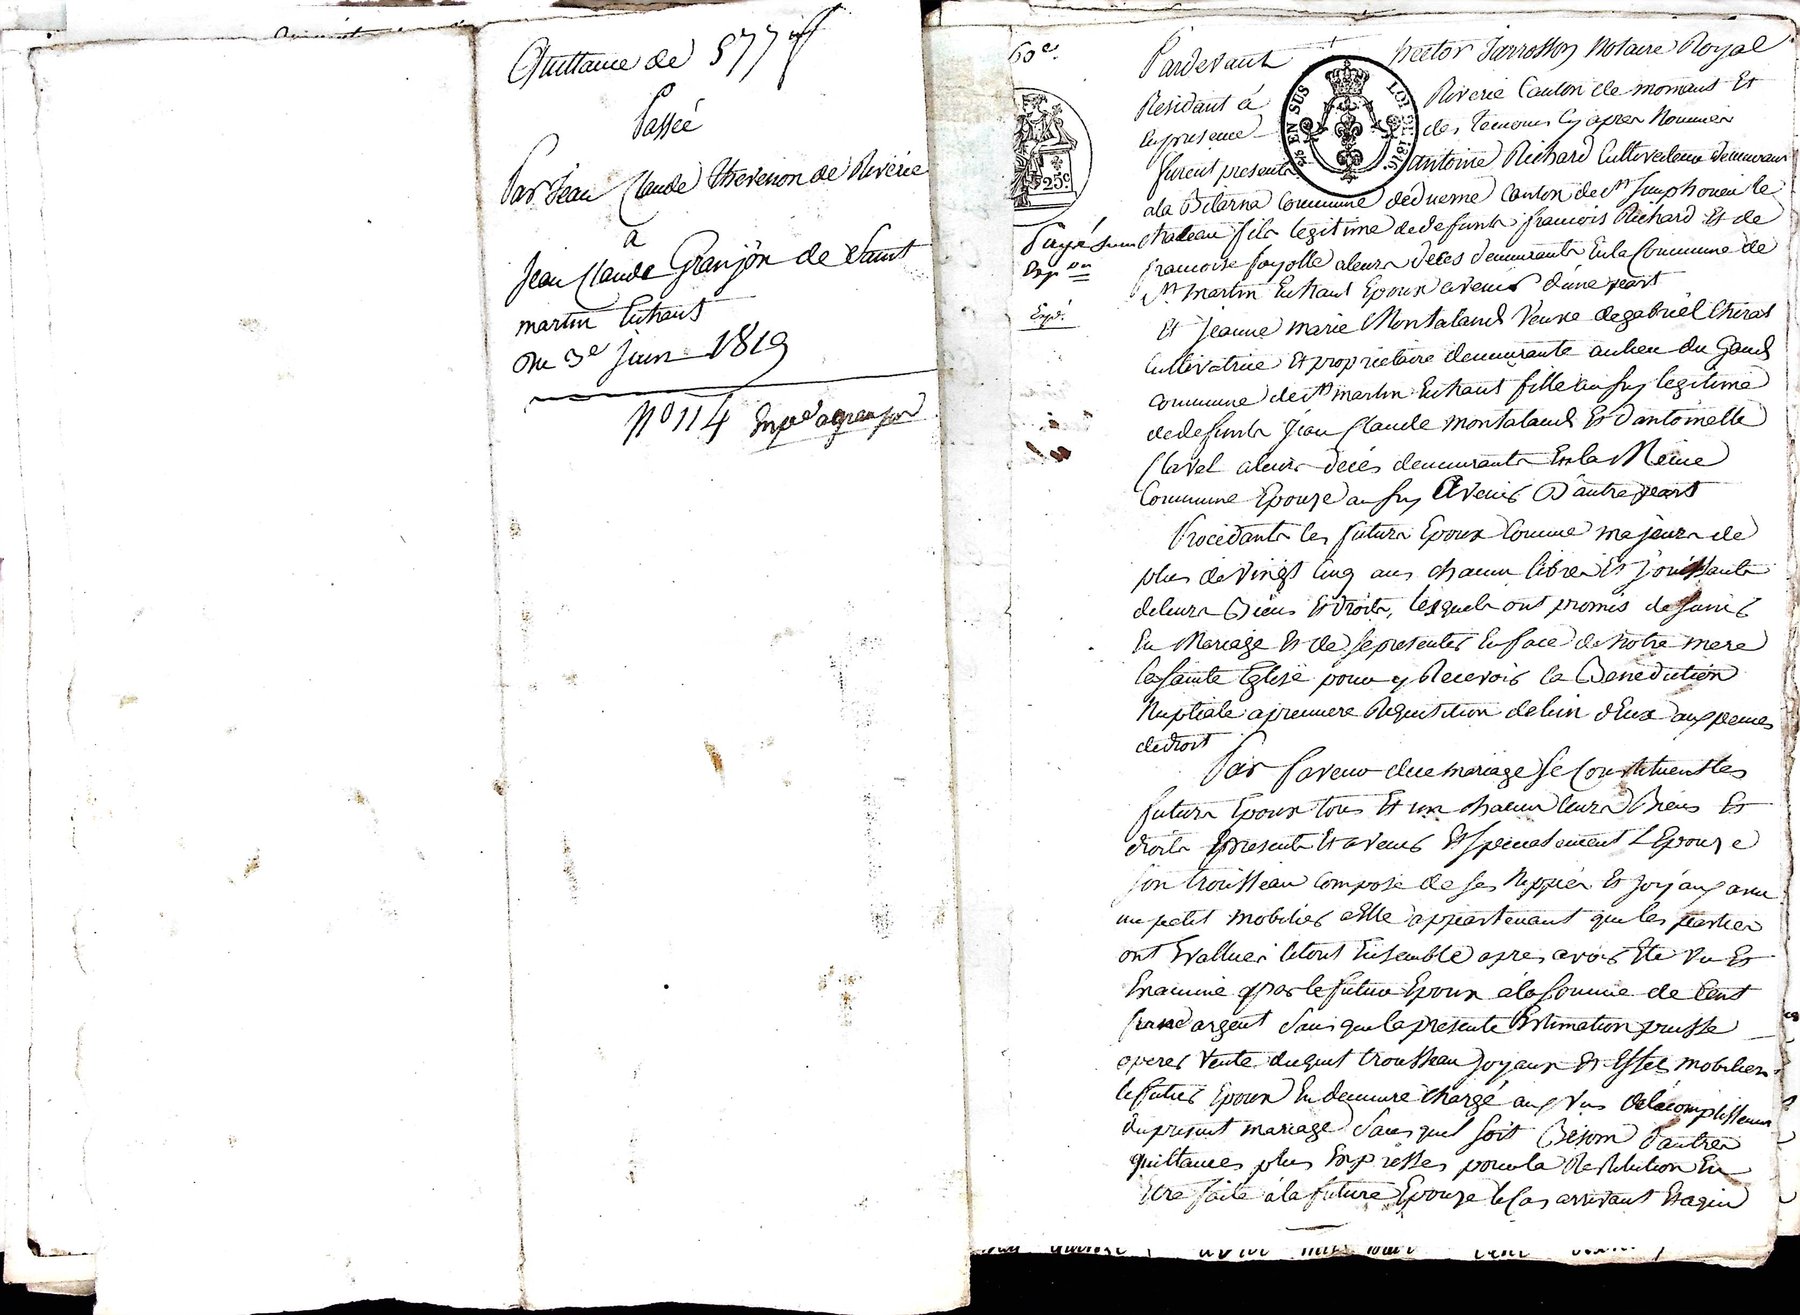 Quittance de 577 ff
Passée
Par Jean Claude Thevenon de Riverie
a
Jean Claude Granjon de Saint
martin Enhaut
Du 3e juin 1819
No 114 Expé a granjon
60e.
Pardevant hector Jarrosson Notaire Royal
Residant á Riverie Canton de mornant Et
En presence des Temoins Cy apres Nommés
EN SUS LOI DE 1816
25c
furent presents antoine Richard Cultivateur demeurant
ala Bilarna Commune deduerne Canton de st Simphorien le
chateau fils legitime dedefunts francois Richard Et de
francoise fayolle aleurs deces demeurants Enla Commune de
st martin Enhaut Epoux avenir d'une part
Et Jeanne marie Montaland Veuve degabriël Chirat
Cultivatrice Et proprietaire demeurante aulieu du
commune de st martin Enhaut fille aussy legitime
dedefunts Jean Claude montaland Et d'antoinette
Clavel aleurs décés demeurants Enla Même
Commune Epouze aussy avenir D'autre part
Payé
Exp.on
Expé.
Procédants les futurs Epoux Comme majeurs de
plus de Vingt Cinq ans chacun libres Et Jouissants
deleurs Biens Et droits, lesquels ont promis de sunir
En Mariage Et de se presenter Enface de Notre mere
la sainte Eglise pour y Recevoir la Benediction
Nuptiale apremiere Requisition delun d'Eux aux peines
dedroit
Par faveur duce mariage se Constituent les
futurs Epoux tous Et un chacun leurs Biens Et
droits presents Et avenir Et specialement L'Epouze
son trousseau composé de ses Nippes Et joyaux avec
un petit mobilier aElle appartenant que les parties
ont Evalluer letout Ensemble apres avoir Eté Vu Et
Examiné par le futur Epoux ála somme de Cent
francs argent sans que la presente Estimation puisse
operer Vente duquel trousseau joyaux Et Effets mobiliers
le futur Epoux En demeure chargé aux Vus delacomplissement
du present mariage sans quil soit Besoin d'autres
quittances plus Expresses pour la Restitution En
Etre faite ála future Epouze le Cas arrivant Et aqui